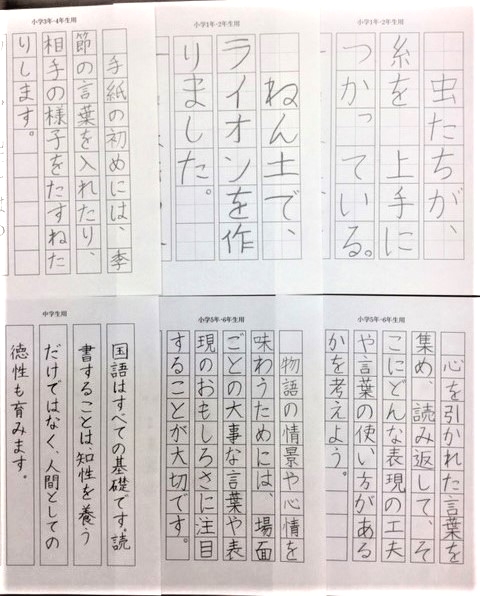 小学1年・2年生用
虫たちが、
糸を 上手に
つかっている。
小学1年・2年生用
ねん土で、
ライオンを作
りました。
小学3年・4年生用
手紙の初めには、季
節の言葉を入れたり、
相手の様子をたずねた
りします。
小学5年・6年生用
心を引かれた言葉を
集め、読み返して、そ
こにどんな表現の工夫
や言葉の使い方がある
かを考えよう。
小学5年・6年生用
物語の情景や心情を
味わうためには、場面
ごとの大事な言葉や表
現のおもしろさに注目
することが大切です。
中学生用
国語はすべての基礎です。読
書することは知性を養う
だけではなく、人間としての
徳性も育みます。